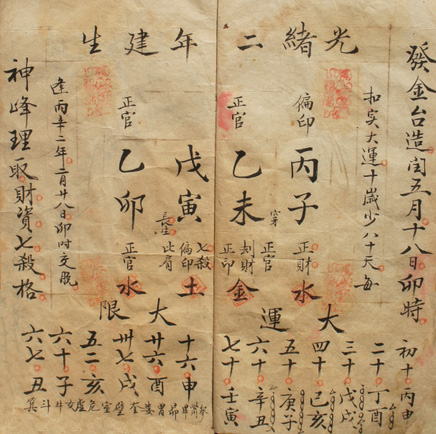 光緒二年建生
發金台造閏五月十八日卯時
扣实大運十歲少八十天每
偏印
丙子
正財
水
正官
乙未
穿
正官
刦財
正印
金
戊寅
長生
七殺
偏印
比肩
土
正官
乙卯
正官
水
逢丙辛二年二月廿八日卯時交脫
神峰理取財資七殺格
大運
初十丙申
二十丁酉
三十戊戌
四十己亥
五十庚子
六十辛丑
七十壬寅
大限
十六申
廿六酉
卅七戌
五二亥
六十子
六七丑
畢昴胃婁奎壁室危虛女牛斗箕